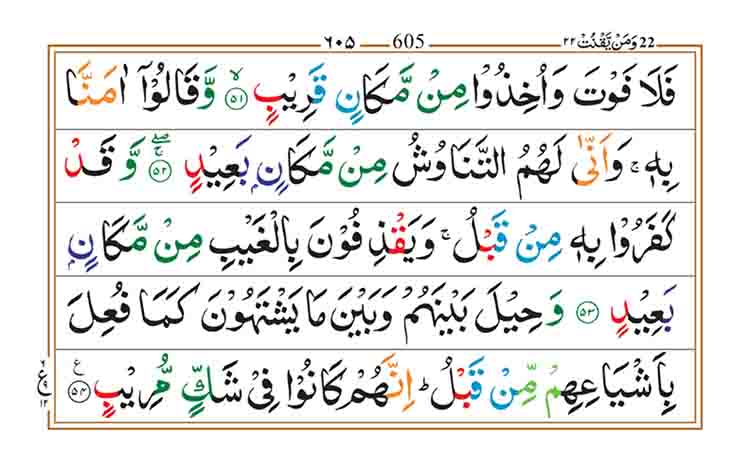 ٦٠٥ 605 وَمَنْ يَّقْنُتْ ٢٢ 22
فَلَا فَوْتَ وَاُخِذُوْا مِنْ مَّكَانٍ قَرِيْبٍ ۙ‏﴿٥١﴾ وَّقَالُوْۤا اٰمَنَّا
بِهٖ ۚ وَاَنّٰى لَهُمُ التَّنَاوُشُ مِنْ مَّكَانٍۭ بَعِيْدٍ ۖۚ‏﴿٥٢﴾ وَّقَدْ
كَفَرُوْا بِهٖ مِنْ قَبْلُ ۚ وَيَقْذِفُوْنَ بِالْغَيْبِ مِنْ مَّكَانٍۭ
بَعِيْدٍ‏﴿٥٣﴾ وَحِيْلَ بَيْنَهُمْ وَبَيْنَ مَا يَشْتَهُوْنَ كَمَا فُعِلَ
بِاَشْيَاعِهِمْ مِّنْ قَبْلُ ؕ اِنَّهُمْ كَانُوْا فِىْ شَكٍّ مُّرِيْبٍ‏﴿٥٤﴾ ع